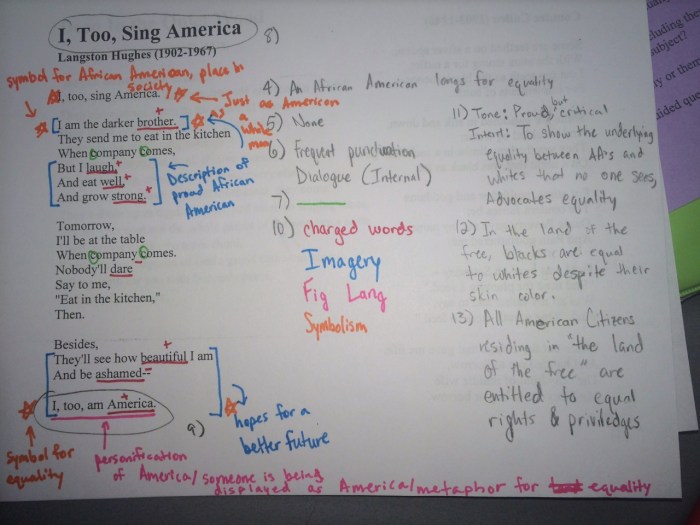 I, Too, Sing America
8)
Langston Hughes (1902-1967)
symbol for African American, place in
society
I, too, sing America.
Just as American
as a
white
man
I am the darker brother.
They send me to eat in the kitchen
When company comes,
But I laugh,
And eat well,
And grow strong.
Description of
proud African
American
Tomorrow,
I'll be at the table
When company comes.
Nobody'll dare
Say to me,
"Eat in the kitchen,"
Then.
Besides,
They'll see how beautiful I am
And be ashamed--
I, too, am America.
9)
hopes for a
better future
symbol for
equality
personification
of America/someone is being
displayed as America/metaphor for equality
4) An African American longs for equality
5) None
6) Frequent punctuation
Dialogue (Internal)
7)
10) charged words
Imagery
Fig Lang
Symbolism
11) Tone: Proud, but critical
Intent: To show the underlying
equality between AA's and
whites that no one sees,
Advocates equality
12) In the land of the
free, blacks are equal
to whites despite their
skin color.
13) All American Citizens
residing in "the land
of the free" are
entitled to equal
rights & priviledges
subject?